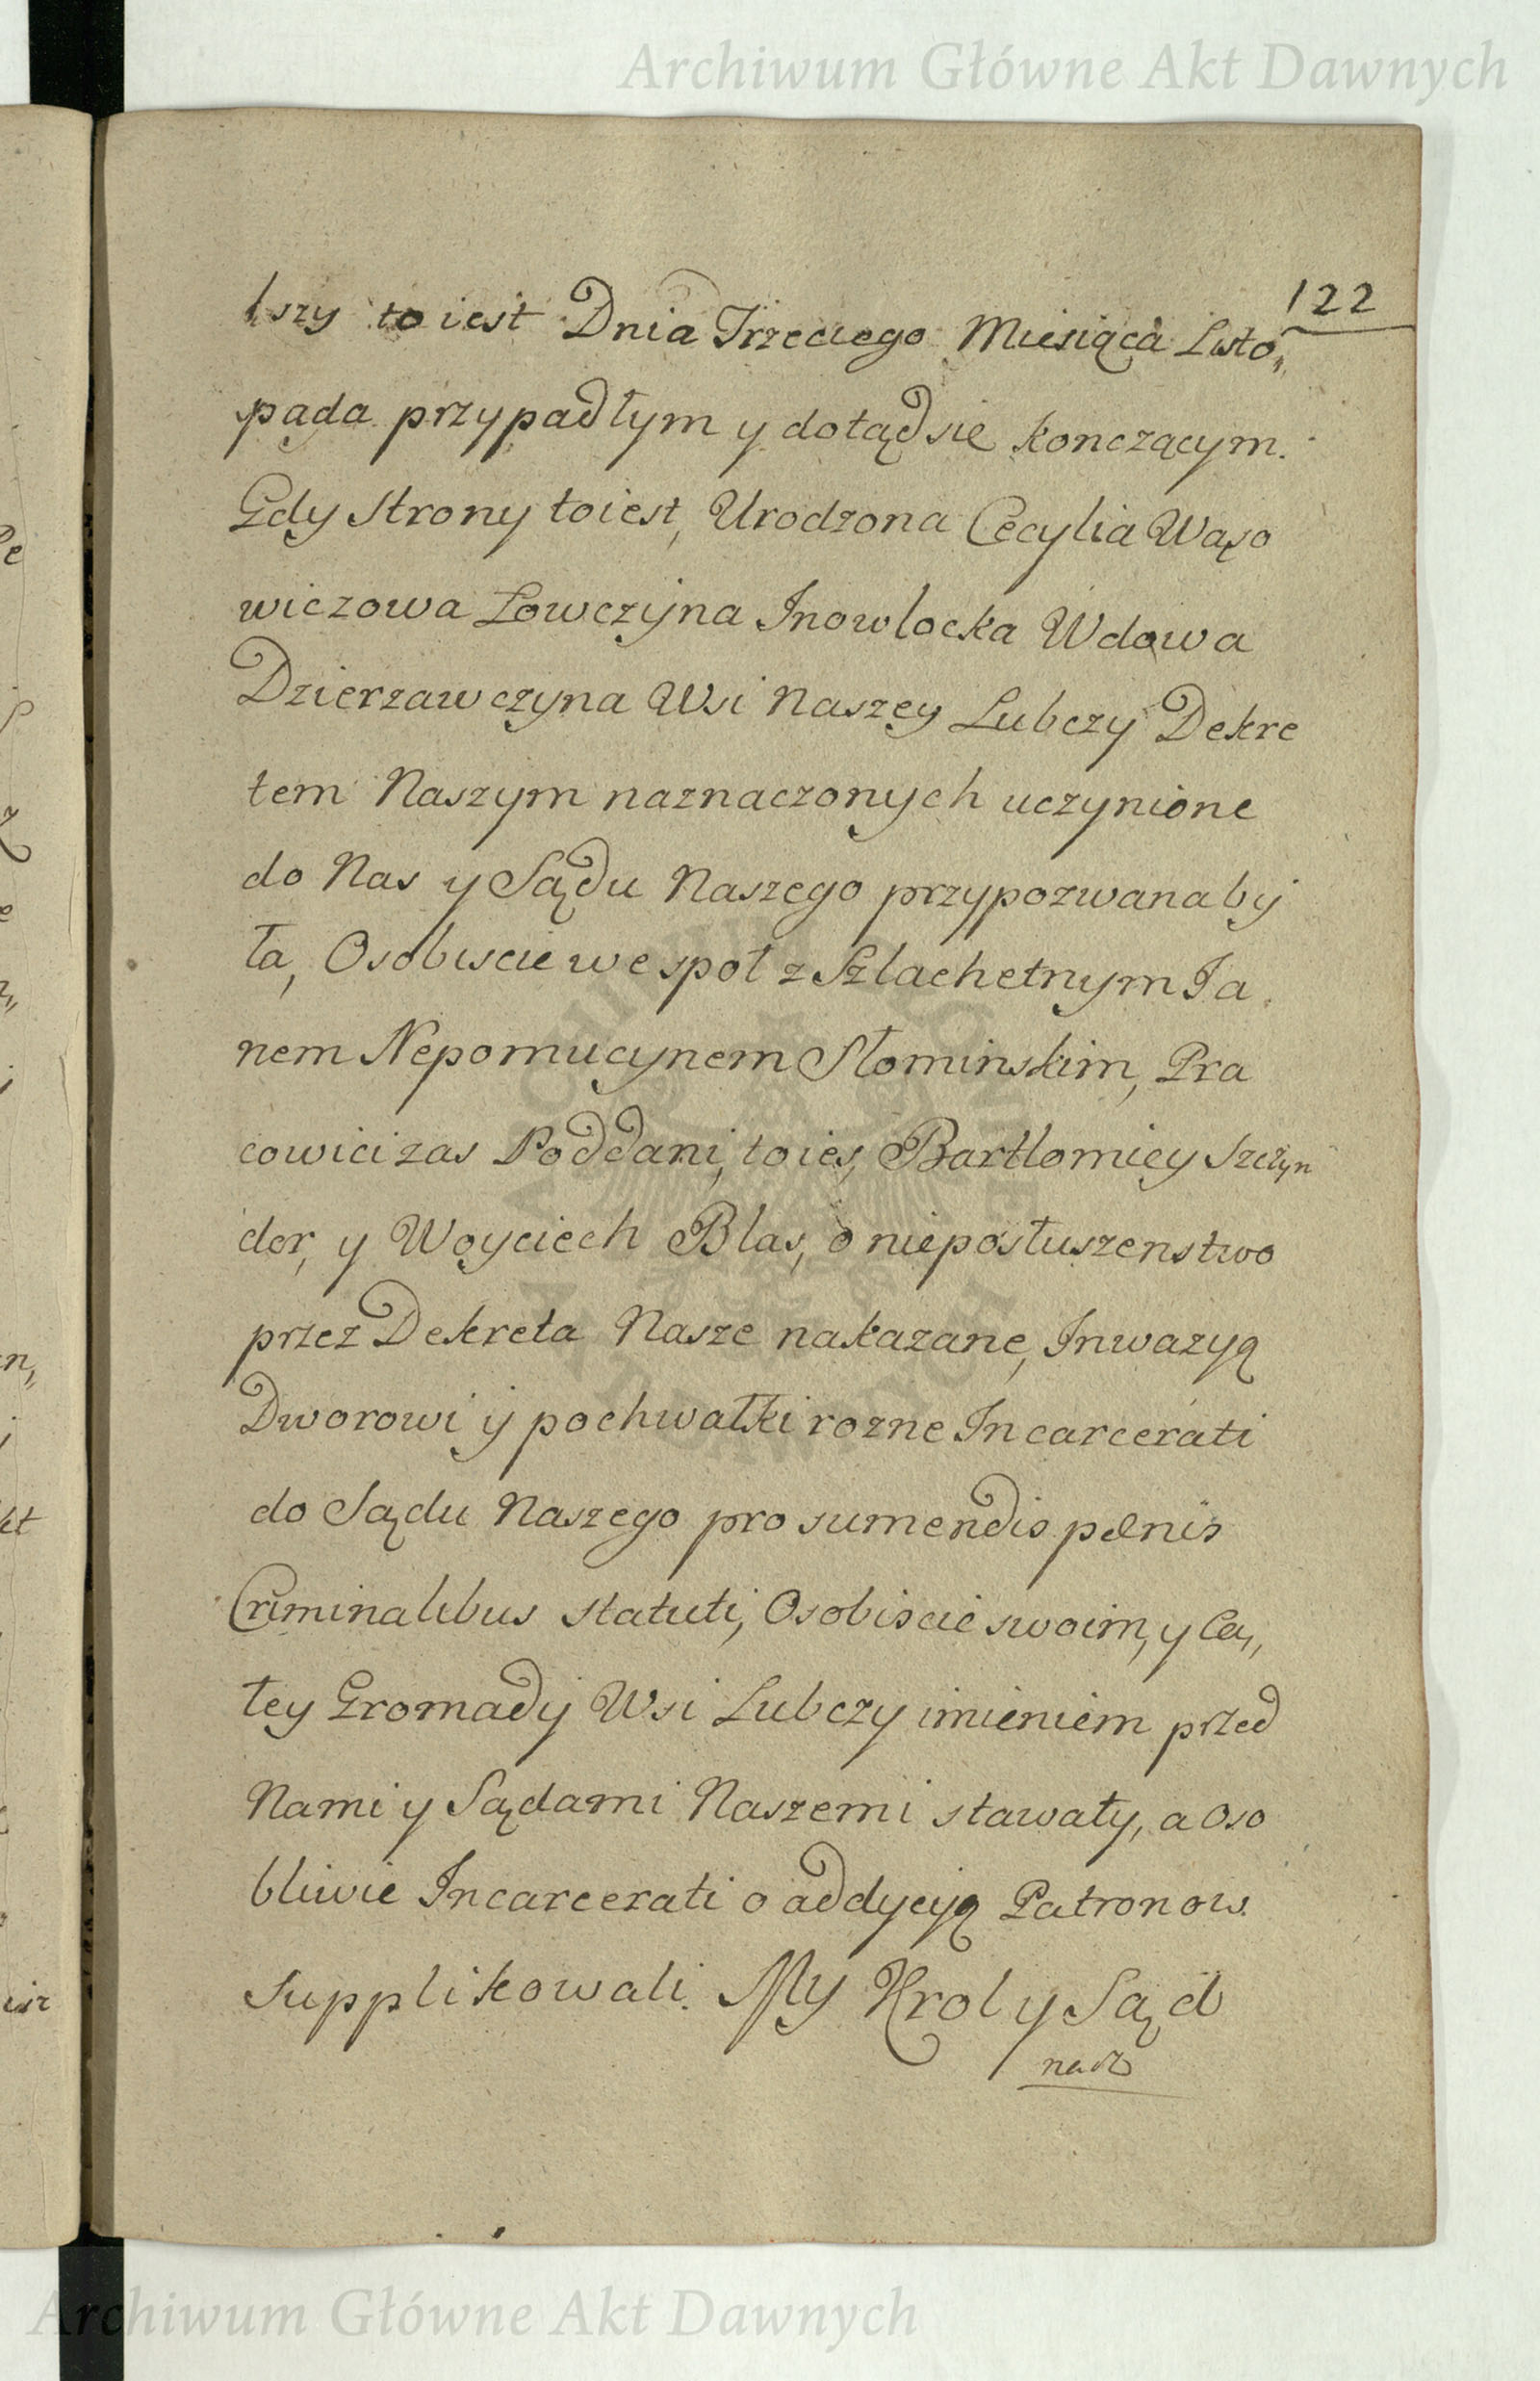 Archiwum Główne Akt Dawnych
122
lszy to iest Dnia Trzeciego Miesiąca Listo„
pada przypadłym y dotąd sie konczącym.
Gdy Strony to iest, Urodzona Cecylia Wąso
wiczowa Łowczyna Inowlocka Wdowa
Dzierzawczyna Wsi Naszey Lubczy Dekre
tem Naszym naznaczonych uczynione
do Nas y Sądu Naszego przypozwana by
ła, Osobiscie we społ z Szlachetnym Ja
nem Nepomucynem Słominskim, Pra
cowici zas Poddani, to ies, Bartłomiey Szczyn
der, y Woyciech Blas, o nieposłuszenstwo
przez Dekreta Nasze nakazane, Inwazyą
Dworowi y pochwałki rozne Incarcerati
do Sądu Naszego pro sumendis pœnis
Criminalibus statuti, Osobiscie swoim, y Ca„
łey Gromady Wsi Lubczy imieniem przed
Nami y Sądami Naszemi stawały, a Oso
bliwie Incarcerati o addycyą Patronow
supplikowali. My Krol y Sąd
nasz
Archiwum Główne Akt Dawnych